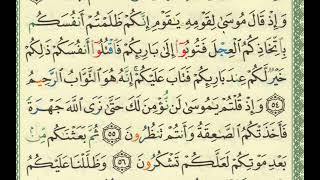 وَإِذْ قَالَ مُوسَىٰ لِقَوْمِهِۦ يَٰقَوْمِ إِنَّكُمْ ظَلَمْتُمْ أَنفُسَكُم
بِٱتِّخَاذِكُمُ ٱلْعِجْلَ فَتُوبُوٓا۟ إِلَىٰ بَارِئِكُمْ فَٱقْتُلُوٓا۟ أَنفُسَكُمْ ذَٰلِكُمْ
خَيْرٌ لَّكُمْ عِندَ بَارِئِكُمْ فَتَابَ عَلَيْكُمْ إِنَّهُۥ هُوَ ٱلتَّوَّابُ ٱلرَّحِيمُ
٥٤ وَإِذْ قُلْتُمْ يَٰمُوسَىٰ لَن نُّؤْمِنَ لَكَ حَتَّىٰ نَرَى ٱللَّهَ جَهْرَةً
فَأَخَذَتْكُمُ ٱلصَّٰعِقَةُ وَأَنتُمْ تَنظُرُونَ ٥٥ ثُمَّ بَعَثْنَٰكُم مِّنۢ
بَعْدِ مَوْتِكُمْ لَعَلَّكُمْ تَشْكُرُونَ ٥٦ وَظَلَّلْنَا عَلَيْكُمُ